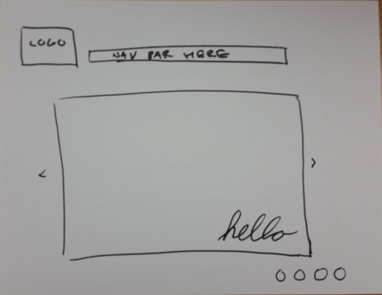 LOGO
NAV BAR HERE
hello